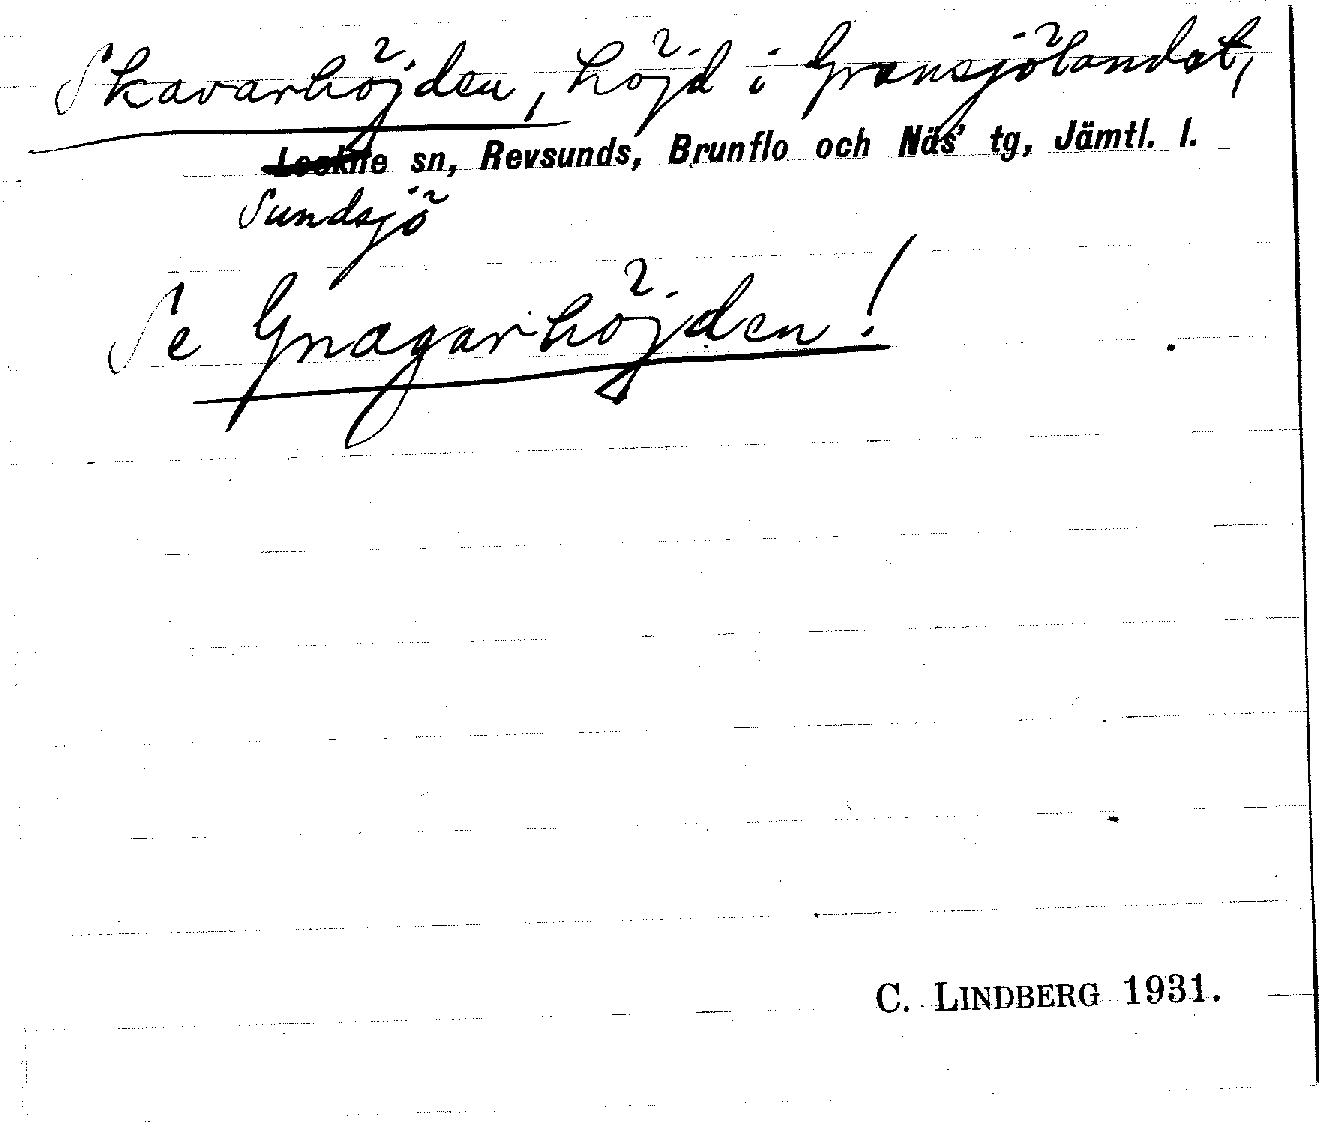 Skavarhöjden, höjd i Gransjölandet,
Lockne sn, Revsunds, Brunflo och Näs' tg, Jämtl. l.
Sundsjö
Se Gnagarhöjden!
C. LINDBERG 1931.